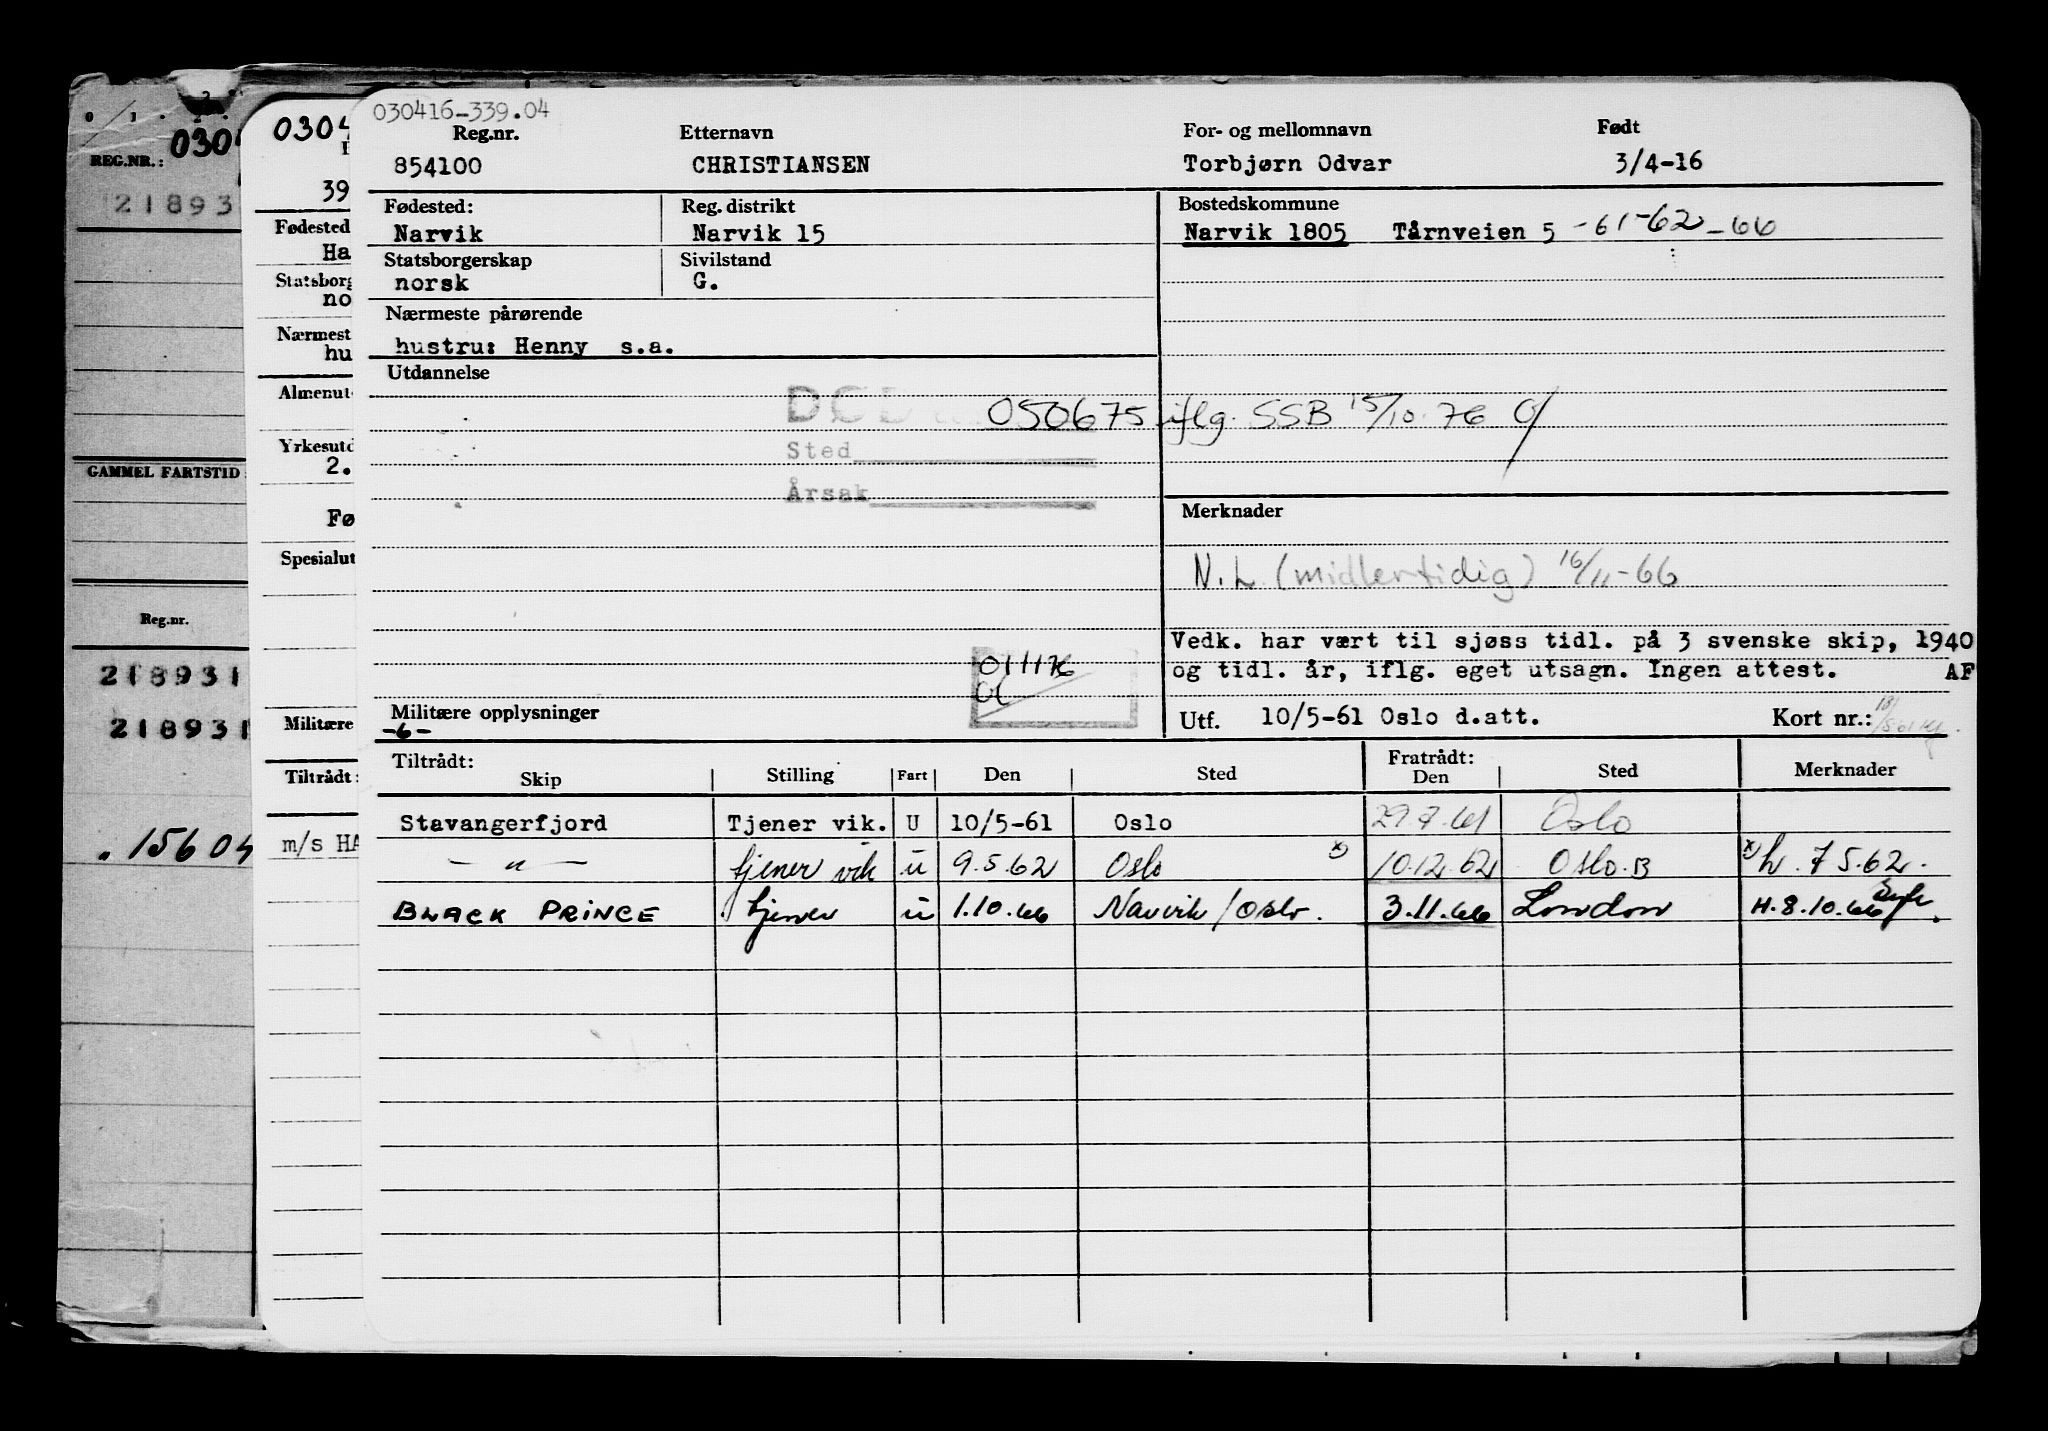 0 1 . 2 .
030
REG.NR.:
21893
GAMMEL FARTSTID
Reg.nr.
218931
218931
. 15604
0304
39
Fødested
Ha
Statsborg
no
Nærmest
hu
Almenut
Yrkesutd
2.
Fø
Spesialut
Militære
Tiltrådt:
m/s HA
030416-339.04
Reg.nr. Etternavn For- og mellomnavn Født
854100 CHRISTIANSEN Torbjørn Odvar 3/4-16
Fødested: Reg. distrikt Bostedskommune
Narvik Narvik 15 Narvik 1805 Tårnveien 5 -61-62-66
Statsborgerskap Sivilstand
norsk G.
Nærmeste pårørende
hustru: Henny s.a.
Utdannelse
DØD 050675 iflg. SSB 15/10-76
Sted
Årsak
Merknader
N.L. (midlertidig) 16/11-66
Vedk. har vært til sjøss tidl. på 3 svenske skip, 1940
og tidl. år, iflg. eget utsagn. Ingen attest. AF
011176
Militære opplysninger
-6-
Utf. 10/5-61 Oslo d.att. Kort nr.:
Tiltrådt: Fratrådt:
Skip Stilling Fart Den Sted Den Sted Merknader
Stavangerfjord Tjener vik. U 10/5-61 Oslo 29.7.61 Oslo
— " — tjener vik u 9.5.62 Oslo x) 10.12.62 Oslo.B x) h. 7.5.62.
BLACK PRINCE tjener u 1.10.66 Narvik/Oslo. 3.11.66 London H.8.10.66